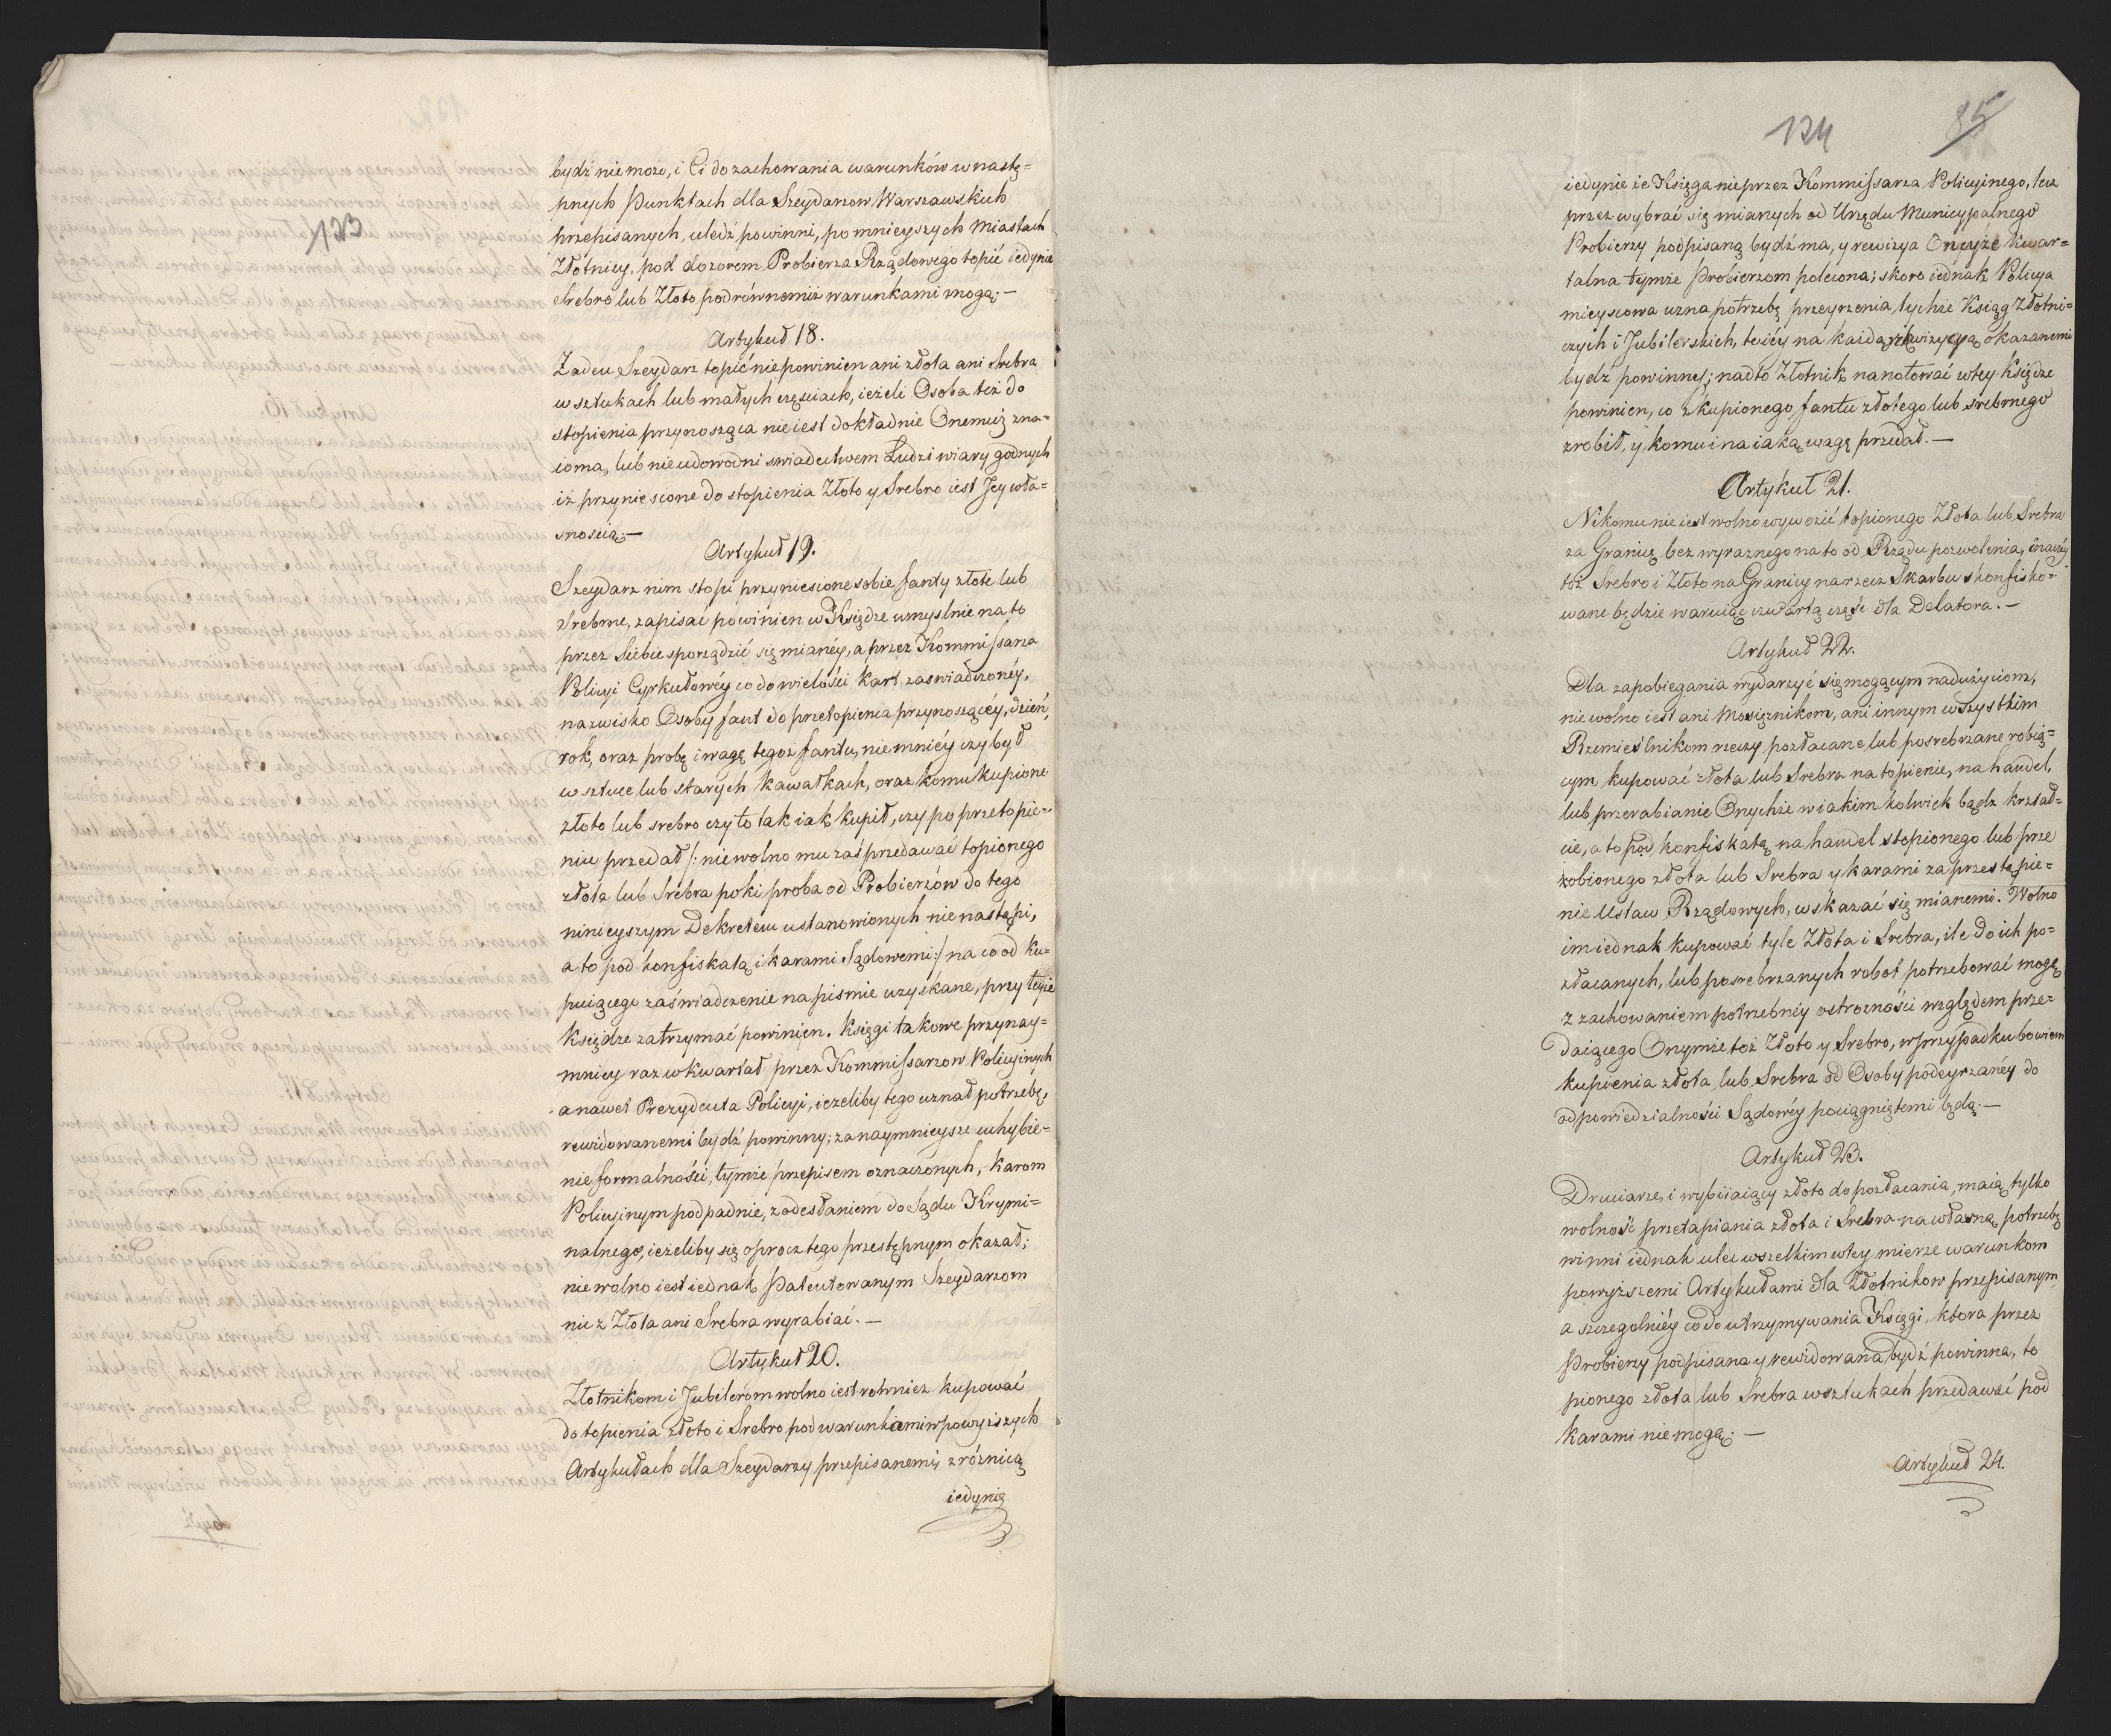 123
bydź nie może, i Ci do zachowania warunków w nastę=
pnych Punktach dla Szeydarzow Warszawskich
przepisanych, uledź powinni, po mnieyszych Miastach
Złotnicy, pod dozorem Probierza Rządowego topić iedynie
Srebro lub Złoto pod równemiż warunkami mogą. —
Artykuł 18.
Żaden Szeydarz topić nie powinien ani złota ani Srebra
w sztukach lub małych częściach, ieżeli Osoba też do
stopienia przynosząca nie iest dokładnie Onemuż zna=
ioma, lub nie udowodni swiadectwem Ludzi wiary godnych
iż przyniesione do stopienia Złoto y Srebro iest Jey wła=
snoscią. —
Artykuł 19.
Szeydarz nim stopi przyniesione sobie fanty złote lub
Srebrne, zapisać powinien w Księdze umyslnie na to
przez Siebie sporządzić się mianéy, a przez Kommissarza
Policyi Cyrkułowéy co do wielości kart zaswiadczonéy,
nazwisko Osoby fant do przetopienia przynoszącéy, dzień,
rok, oraz probę i wagę tegoż fantu, niemniéy czy był
w sztuce lub starych kawałkach, oraz komu kupione
złoto lub srebro czy to tak iak kupił, czy po przetopie=
niu przedał /: nie wolno mu zaś przedawać topionego
złota lub Srebra poki proba od Probierzów do tego
ninieyszym Dekretem ustanowionych nie nastąpi,
a to pod konfiskatą i karami Sądowemi :/ na co od ku=
puiącego zaświadczenie na pismie uzyskane, przy teyże
Księdze zatrzymać powinien. Księgi takowe przynay=
mniey raz w kwartał przez Kommissarzow Policyinych
a nawet Prezydenta Policyi, ieżeliby tego uznał potrzebę,
rewidowanemi bydź powinny; za naymnieysze uchybie=
nie formalności, tymże przepisem oznaczonych, karom
Policyinym podpadnie, z odesłaniem do Sądu Krymi=
nalnego, ieżeliby się oprocz tego przestępnym okazał;
nie wolno iest iednak Patentowanym Szeydarzom
nic z Złota ani Srebra wyrabiać. —
Artykuł 20.
Złotnikom i Jubilerom wolno iest rownież kupować
do topienia złoto i Srebro pod warunkami w powyższych
Artykułach dla Szeydarzy przepisanemi, z różnicą
iedynie
124
85
iedynie że Księga nie przez Kommissarza Policyinego, lecz
przez wybrać się mianych od Urzędu Municypalnego
Probierzy podpisaną bydź ma, y rewizya Oneyże kwar=
talna tymże Probierzom polecona; skoro iednak Policya
mieyscowa uzna potrzebę przeyrzenia tychże Ksiąg Złotni=
czych i Jubilerskich, teiéy na każdą rekwizycyą okazanemi
bydź powinny; nadto Złotnik nanotować w tey Księdze
powinien, co z kupionego fantu złotego lub srebrnego
zrobił, y komu i na iaką wagę przedał. —
Artykuł 21.
Nikomu nie iest wolno wywozić topionego Złota lub Srebra
za Granicę bez wyraznego na to od Rządu pozwolenia, inaczéy
toż Srebro i Złoto na Granicy na rzecz Skarbu skonfisko=
wane będzie waruiąc czwartą część dla Delatora. —
Artykuł 22.
Dla zapobiegania wydarzyć się mogącym nadużyciom,
nie wolno iest ani Mosiężnikom, ani innym wszystkim
Rzemieślnikom rzeczy pozłacane lub posrebrzane robią=
cym kupować złota lub Srebra na topienie, na handel,
lub przerabianie Onychże w iakim kolwiek bądz kształ=
cie, a to pod konfiskatą na handel stopionego lub prze
robionego złota lub Srebra y karami za przestąpie=
nie Ustaw Rządowych, wskazać się mianemi. Wolno
im iednak kupować tyle Złota i Srebra, ile do ich po=
złacanych, lub posrebrzanych robot potrzebować mogą
z zachowaniem potrzebnéy ostrozności względem prze=
daiącego Onymże toż Złoto y Srebro, w przypadku bowiem
kupienia złota lub Srebra od Osoby podeyrzanéy do
odpowiedzialności Sądowéy pociągniętemi będą. —
Artykuł 23.
Druciarze, i wybiiaiący złoto do pozłacania, maią tylko
wolność przetapiania złota i Srebra na własną potrzebę
winni iednak uledz wszelkim w tey mierze warunkom
powyższemi Artykułami dla Złotnikow przepisanym
a szczególniéy co do utrzymywania Księgi, ktora przez
Probierzy podpisana y rewidowana bydź powinna, to
pionego złota lub Srebra w sztukach przedawać pod
karami nie mogą. —
Artykuł 24.